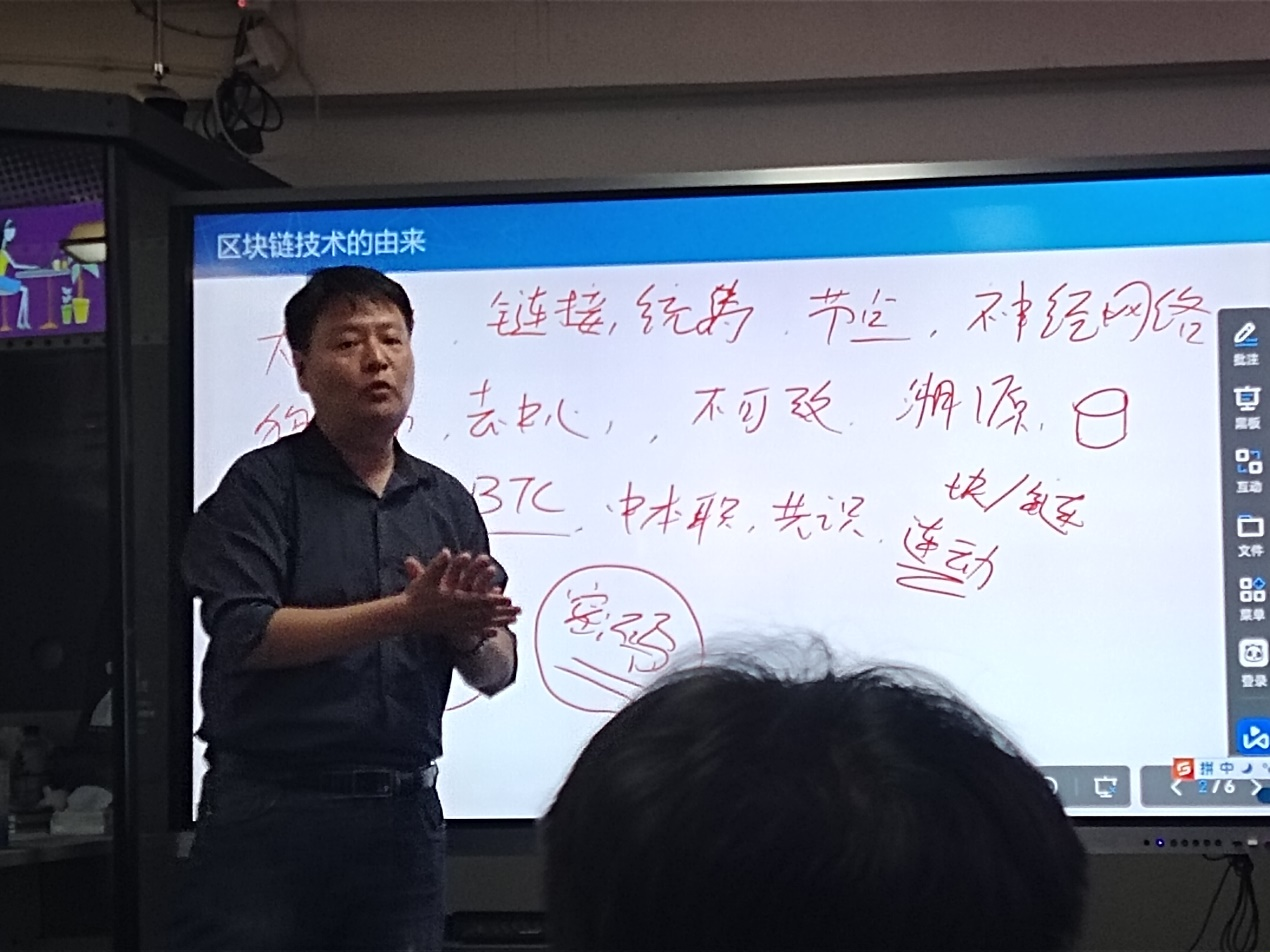 区块链技术的由来
链接, 节点, 神经网络
去中心, 不可改 溯源
BTC, 中本聪, 共识 块/链
连动
密码
批注
黑板
互动
文件
菜单
登录
拼 中
2/6